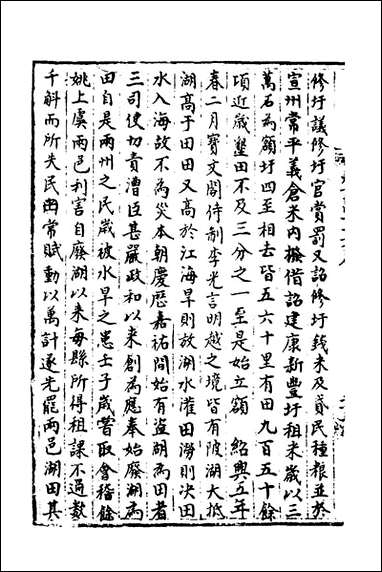 修圩議修圩官賞罰又詔修圩錢米及貸民種粮並於
宣州常平義倉米内撥借詔建康新豐圩租米歲以三
萬石為額圩四至相去皆五六十里有田九百五十餘
頃近歲墾田不及三分之一至是始立額　紹興五年
春二月寳文閣侍制李光言明越之境皆有陂湖大抵
湖髙于田田又髙於江海旱則放湖水灌田澇則决田
水入海故不為災本朝慶歷嘉祐間始有盜湖為田者
三司使切責漕臣甚嚴政和以來創為應奉始廢湖為
田自是兩州之民歲被水旱之患壬子歲嘗取會稽餘
姚上虞兩邑利害自廢湖以來每縣所得租課不過數
千斛而所失民田常賦動以萬計遂先罷兩邑湖田其